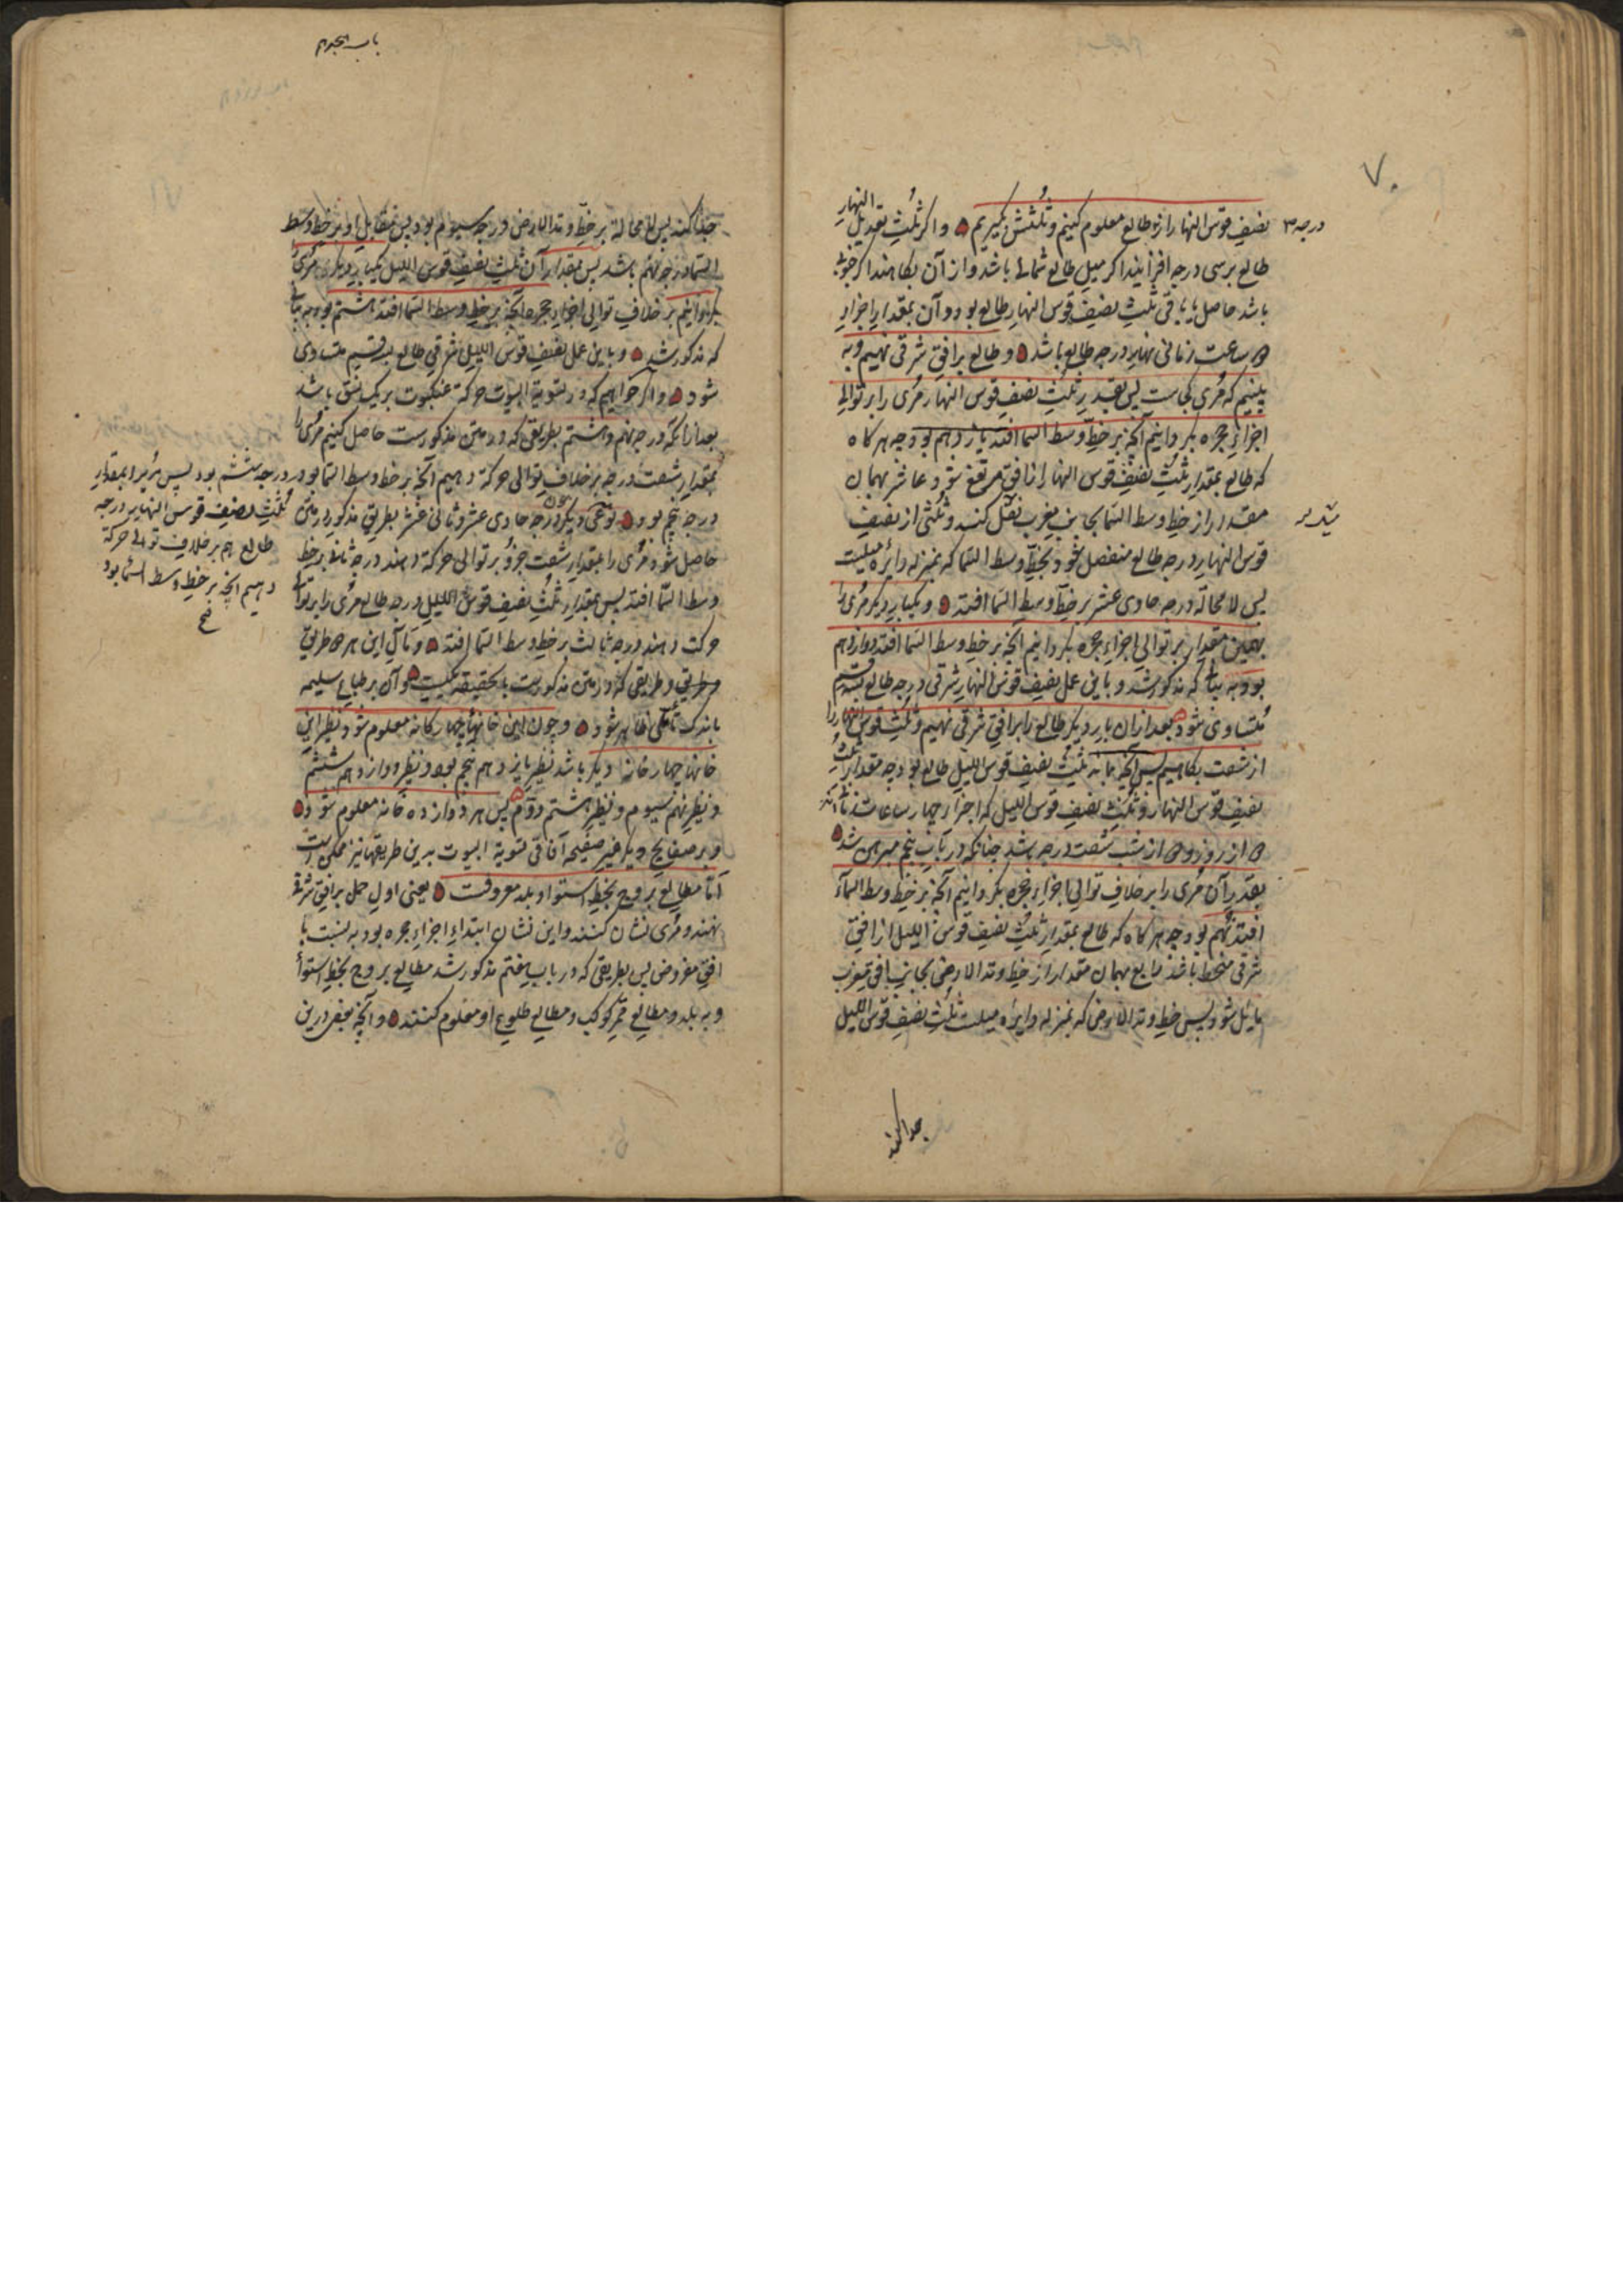 ۷۰
نصف قوس النهار از نو طالع معلوم کنیم و ثلثش بگیریم و اگر ثلث تعدیل النهار
درجه ۳
طالع بر سی درجه افزایند اگر میل طالع شمالی باشد و از آن بکاهند اگر جنوبی
باشد حاصل یا باقی ثلث نصف قوس النهار طالع بود و آن بمقدار اجزار
ساعت زمانی نهار درجه طالع باشد و طالع بر افق شرقی نهیم و به
بینیم که مُری کجاست پس بقدر ثلث نصف قوس النهار مُری را بر توالی
اجزاءِ حجره بگردانیم آنچه بر خط وسط السما افتد یازدهم بود چه هرگاه
که طالع بمقدار ثلث نصف قوس النهار از افق مرتفع شود عاشر بهمان
مقدار از خط وسط السما بجانب مغرب نقل کند و ثلثی از نصف
قوس النهار درجه طالع منفصل شود بخط وسط السما که بمنزله دائره میلیست
پس لا محاله درجه حادی عشر بر خط وسط السما افتد و یکبار دیگر مُری را
بهمین مقدار بر توالی اجزاءِ حجره بگردانیم آنچه بر خط وسط السما افتد دوازدهم
بود به که مذکور شد و باین عمل نصف قوس النهار شرقی درجه طالع بسه قسم
متساوی شود بعد از آن بار دیگر طالع را بر افق شرقی نهیم و ثلث قوس النهار را
از شصت بکاهیم پس آنچه بماند ثلث نصف قوس اللیل طالع بود چه مقدار ثلث
نصف قوس النهار و ثلث نصف قوس اللیل که اجزاء چهار ساعات زمانی اند
از روز و از شب شصت درجه باشد چنانکه در باب پنجم مبرهن شد
بقدر آن مُری را بر خلاف توالی اجزاءِ حجره بگردانیم آنچه بر خط وسط السماء
افتد نهم بود چه هرگاه که طالع بمقدار ثلث نصف قوس اللیل از افق
شرقی منحط باشد رابع بهمان مقدار از خط وتد الارض بجانب افق مغرب
مایل شود پس خط وتد الارض که بمنزله دایره میلست ثلث نصف قوس اللیل
جدا کند
باب هجدهم
جدا کند پس لا محالة بر خط وتد الارض درجه سیوم بود پس مقابل او بر خط وسط
السما درجه نهم باشد پس بمقدار آن ثلث نصف قوس اللیل یکبار دیگر مُری را
بگردانیم بر خلاف توالی اجزاءِ حجره آنچه بر خط وسط السما افتد هشتم بود به
که مذکور شد و باین عمل نصف قوس اللیل شرقی طالع بسه قسم متساوی
شود و اگر خواهیم که در تسویة البیوت حرکة عنکبوت بر یک نسق باشد
بعد از آنکه درجه نهم و هشتم بطریقی که در متن مذکورست حاصل کنیم مُری را
بمقدار شصت درجه بر خلاف توالی حرکة دهیم آنچه بر خط وسط السما بود
درجه ششم بود پس مُری را بمقدار
ثلث نصف قوس النهار درجه
طالع هم بر خلاف توالی حرکة
دهیم آنچه بر خط وسط السما بود
درجه پنجم بود نوعی دیگر درجه حادی عشر و ثانی عشر بطریق مذکور در متن
حاصل شود مُری را بمقدار شصت جزو بر توالی حرکة دهند درجه ثانی بر خط
وسط السما افتد پس بمقدار ثلث نصف قوس اللیل درجه طالع مُری را بر توالی
حرکت دهند درجه ثالث بر خط وسط السما افتد و مآل این هر دو طریق
و طریقی که در متن مذکورست بالحقیقة یکیست و آن بر طباع سلیمه
باندک تأملی ظاهر شود و چون این خانهاء چهارگانه معلوم شود نظیر این
خانها چهار خانه دیگر باشد نظیر یازدهم پنجم بود و نظیر دوازدهم ششم
و نظیر نهم سیوم و نظیر هشتم دوم پس هر دوازده خانه معلوم شود
و بر صفایح دیگر غیر صفیحه آفاقی تسویة البیوت بدین طریقها نیز ممکن است
اما مطالع بروج بخط استوا و بلد معروفست یعنی اول حمل بر افق شرقی
نهند و مُری نشان کنند و این نشان ابتداءِ اجزاءِ حجره بود به نسبت با
افق مفروض پس بطریقی که در باب هفتم مذکور شد مطالع بروج بخط استوا
و به بلد و مطالع ممر کوکب و مطالع طلوع او معلوم کنند و آنچه بعضی درین